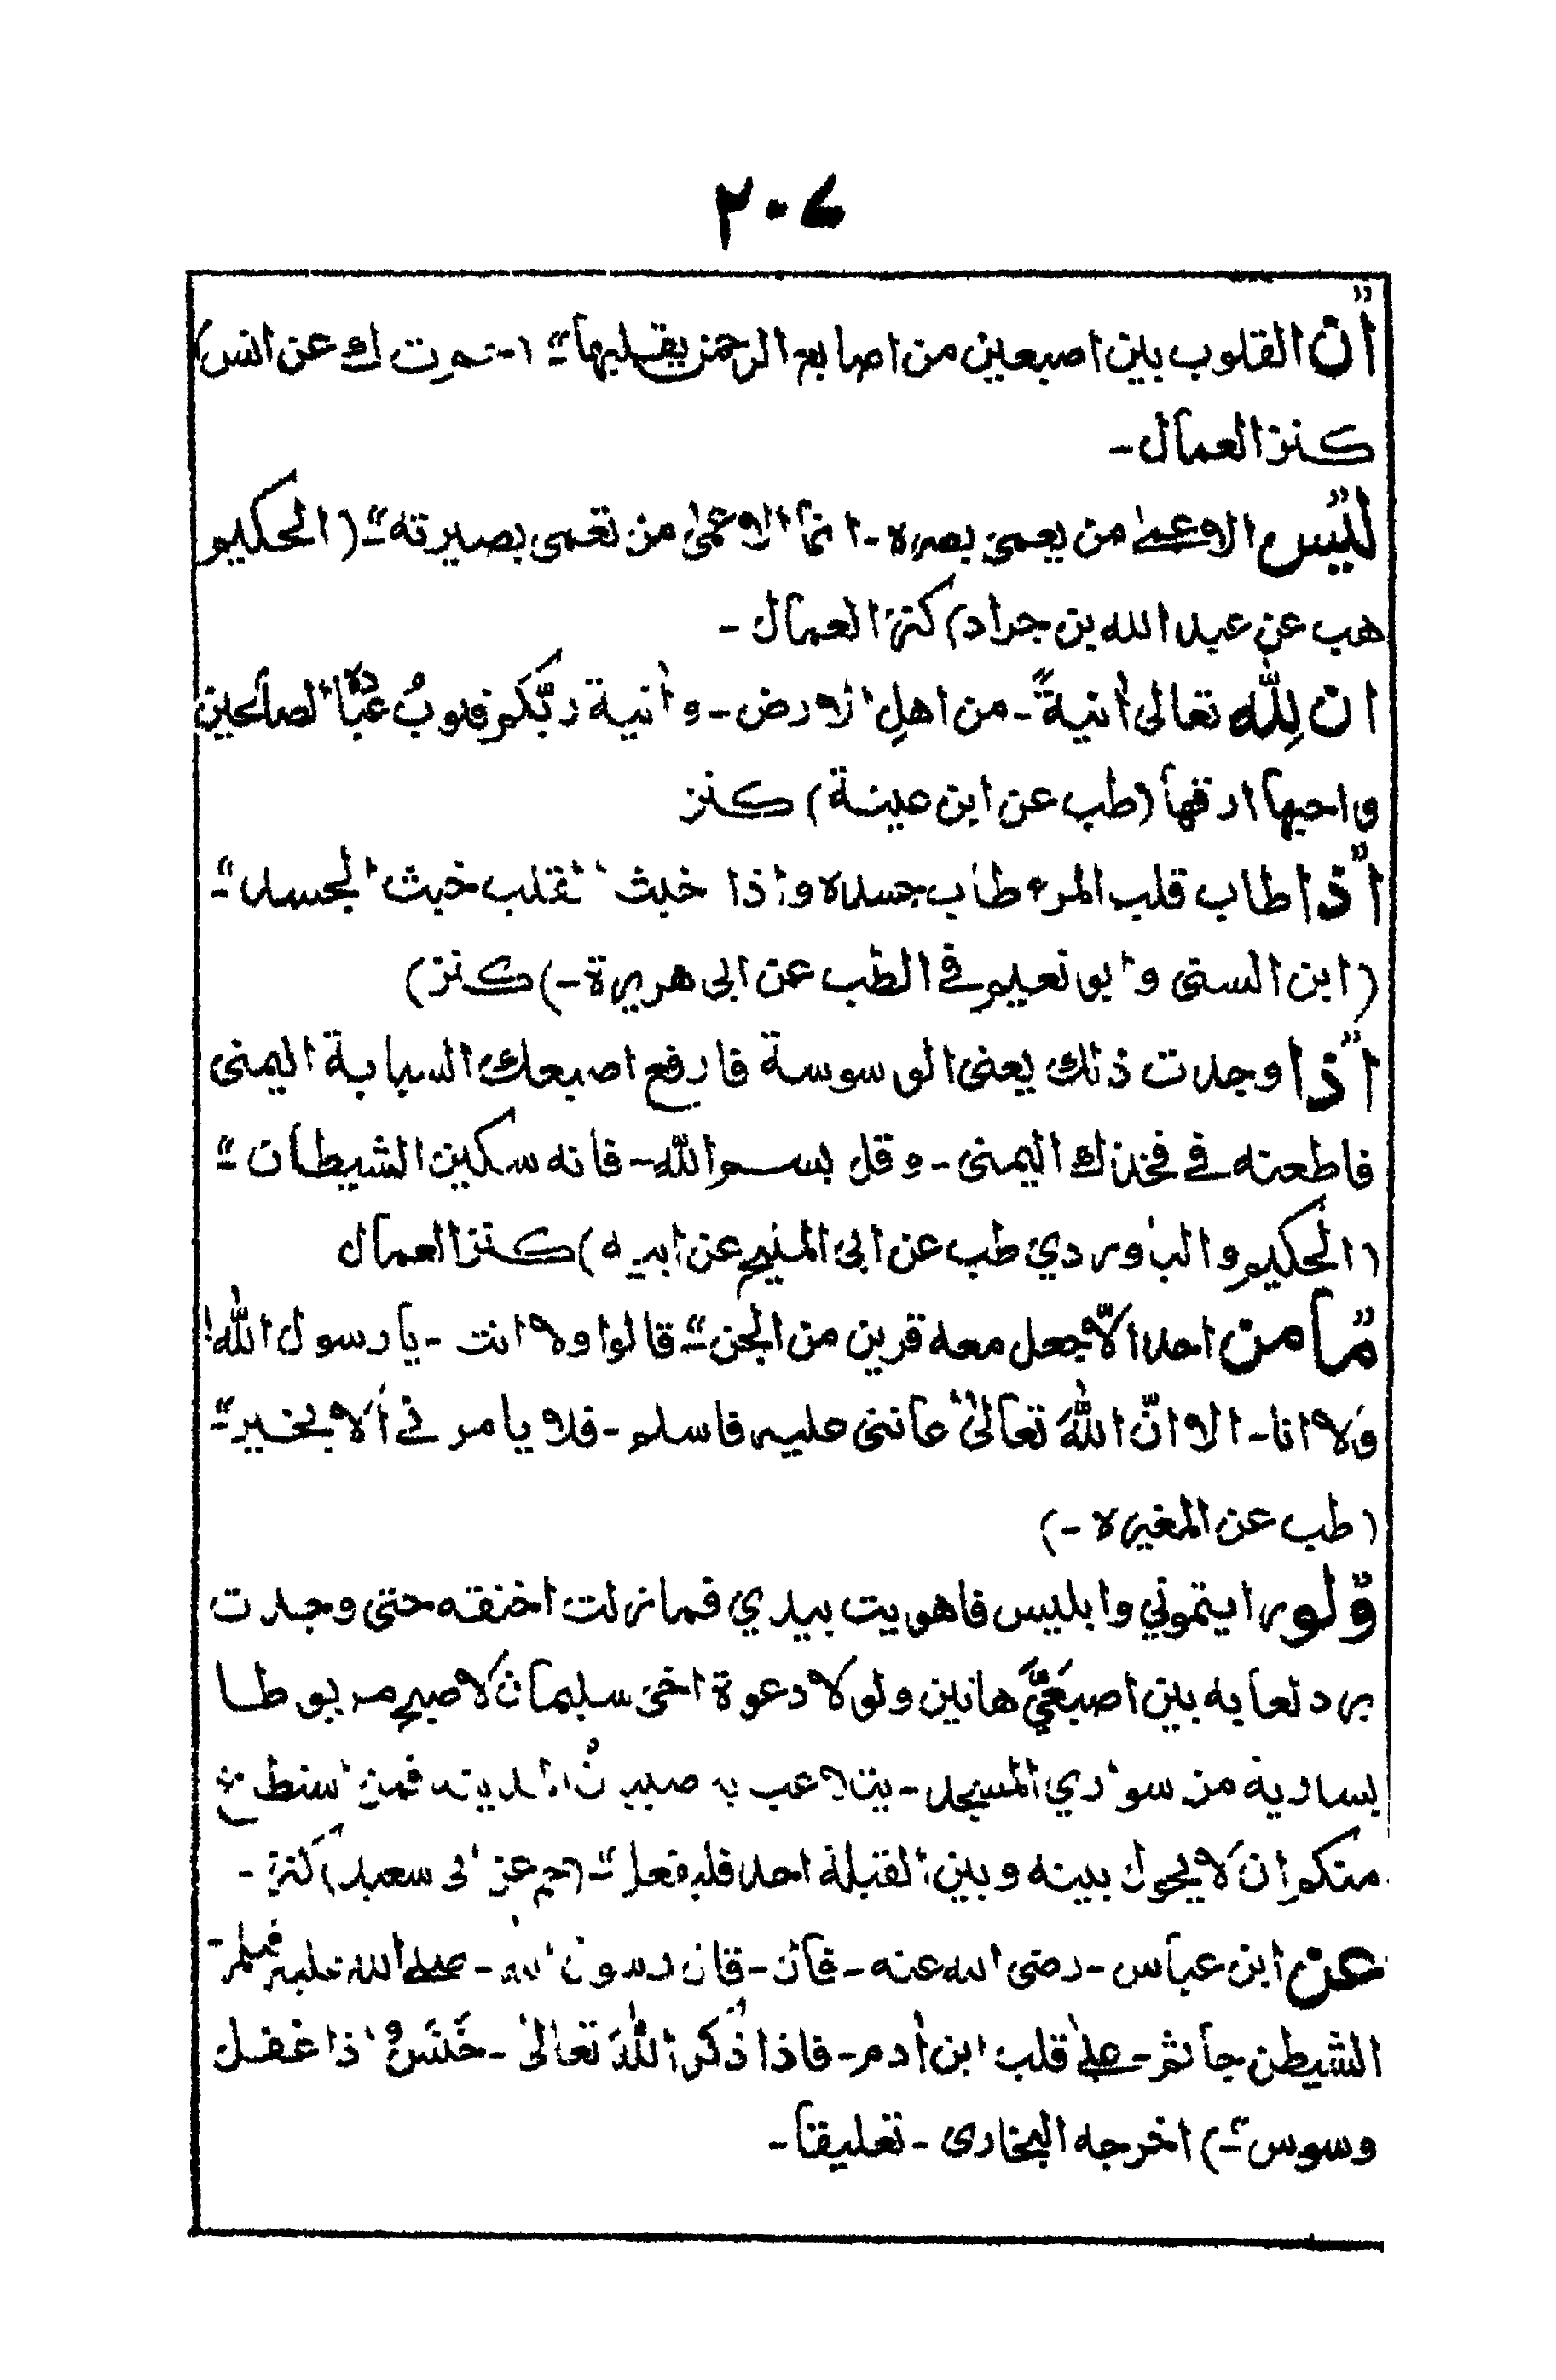 ۲۰۷
"ان القلوب بين اصبعين من اصابع الرحمن يقلبها"۔ (حم ت ك عن انس)
كنز العمال۔
"ليس الاعمىٰ من يعمى بصره۔ انما الاعمىٰ من تعمى بصيرته"۔ (الحكيم
هب عن عبد الله بن جراد) كنز العمال۔
ان لِلّٰه تعالى اٰنيةً۔ من اهلِ الارض۔ و اٰنية ربّكم قلوبُ عباده الصالحين
واحبها ارقها (طب عن ابن عينة) كنز
"اذا طاب قلب المرء طاب جسده واذا خبث القلب خبث الجسد"۔
(ابن السنى و ابو نعيم فے الطب عن ابى هريرة۔) كنز)
"اذا وجدت ذلك يعنى الوسوسة فارفع اصبعك السبابة اليمنى
فاطعنه فے فخذك اليمنى۔ وقل بسم الله۔ فانه سكين الشيطان"۔
(الحكيم والباوردي طب عن ابى المليح عن ابيه) كنز العمال
"ما من احد الّا جعل معه قرين من الجن"۔ قالوا ولا انت۔ يا رسول الله!
وَلا انا۔ الا انّ اللهَ تعالىٰ اعاننى عليه فاسلم۔ فلا يامرنے اَلا بخير"۔
(طب عن المغيره۔)
"ولو رايتموني وابليس فاهويت بيدي فما زلت اخنقه حتى وجدت
برد لعابه بين اصبعَيَّ هاتين ولولا دعوة اخى سليمان لاصبح مربوطا
بسارية من سواري المسجد۔ يتلاعب به صبيان المدينه فمن استطاع
منكم ان لا يحول بينه وبين القبلة احد فليفعل"۔ (حم عن ابى سعيد) كنز۔
عن ابن عباس۔ رضى الله عنه۔ قال۔ قال رسول الله۔ صلے الله عليه وسلم۔
الشيطن جاثم۔ علےٰ قلب ابن اٰدم۔ فاذا ذُكر اللهَ تعالىٰ۔ خَنَسَ واذا غفل
وسوس"۔) اخرجه البخارى۔ تعليقا۔